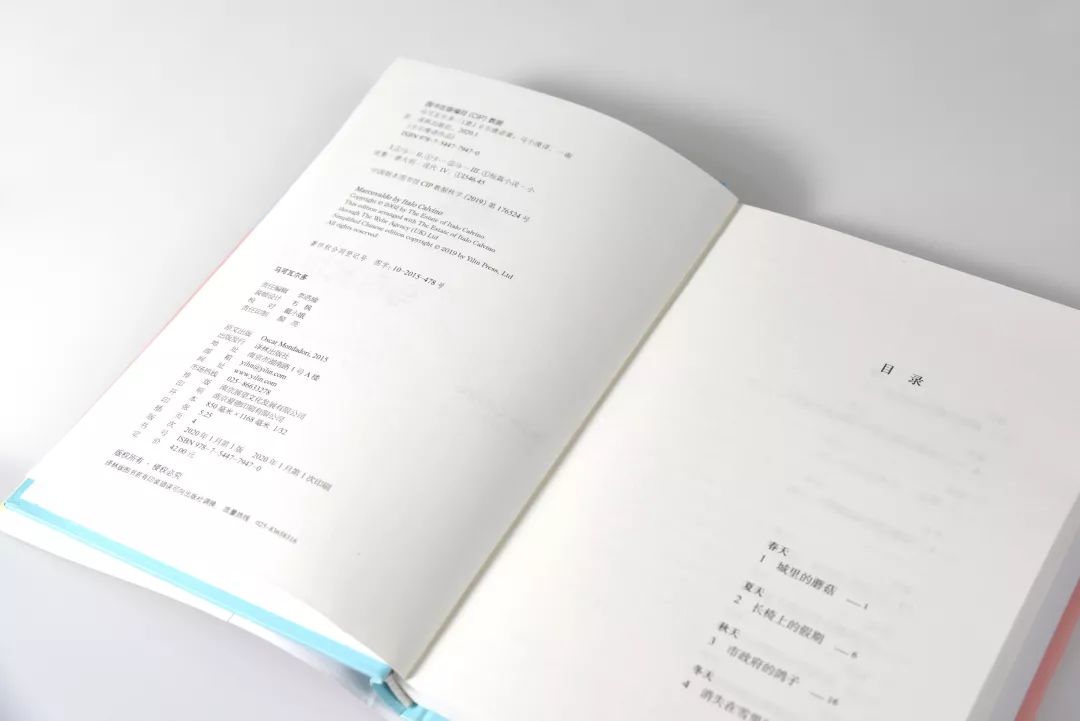 图书在版编目（CIP）数据
马可瓦尔多 /（意）卡尔维诺著；马小漠译. —南
京：译林出版社，2020.1
（卡尔维诺作品）
ISBN 978-7-5447-7947-0
I.①马… II.①卡… ②马… III.①短篇小说 - 小
说集 - 意大利 - 现代 IV. ①I546.45
中国版本图书馆 CIP 数据核字 (2019) 第 176524 号
Marcovaldo by Italo Calvino
Copyright © 2002 by The Estate of Italo Calvino
This edition arranged with The Estate of Italo Calvino
through The Wylie Agency (UK) Ltd
Simplified Chinese edition copyright © 2019 by Yilin Press, Ltd
All rights reserved.
著作权合同登记号 图字：10-2015-478 号
马可瓦尔多
责任编辑
装帧设计 韦 枫
校 对 戴小娥
责任印制 颜 亮
原文出版 Oscar Mondadori, 2015
出版发行 译林出版社
地 址 南京市湖南路 1 号 A 楼
邮 箱 yilin@yilin.com
网 址 www.yilin.com
市场热线 025-86633278
排 版 南京展望文化发展有限公司
印 刷
开 本 850 毫米 × 1168 毫米 1/32
印 张 5.25
插 页 4
版 次 2020 年 1 月第 1 版 2020 年 1 月第 1 次印刷
书 号 ISBN 978-7-5447-7947-0
定 价 42.00 元
版权所有 · 侵权必究
译林版图书若有印装错误可向出版社调换。质量热线：025-83658316
目 录
春天
1 城里的蘑菇 —1
夏天
2 长椅上的假期 —6
秋天
3 市政府的鸽子 —16
冬天
4 消失在雪里